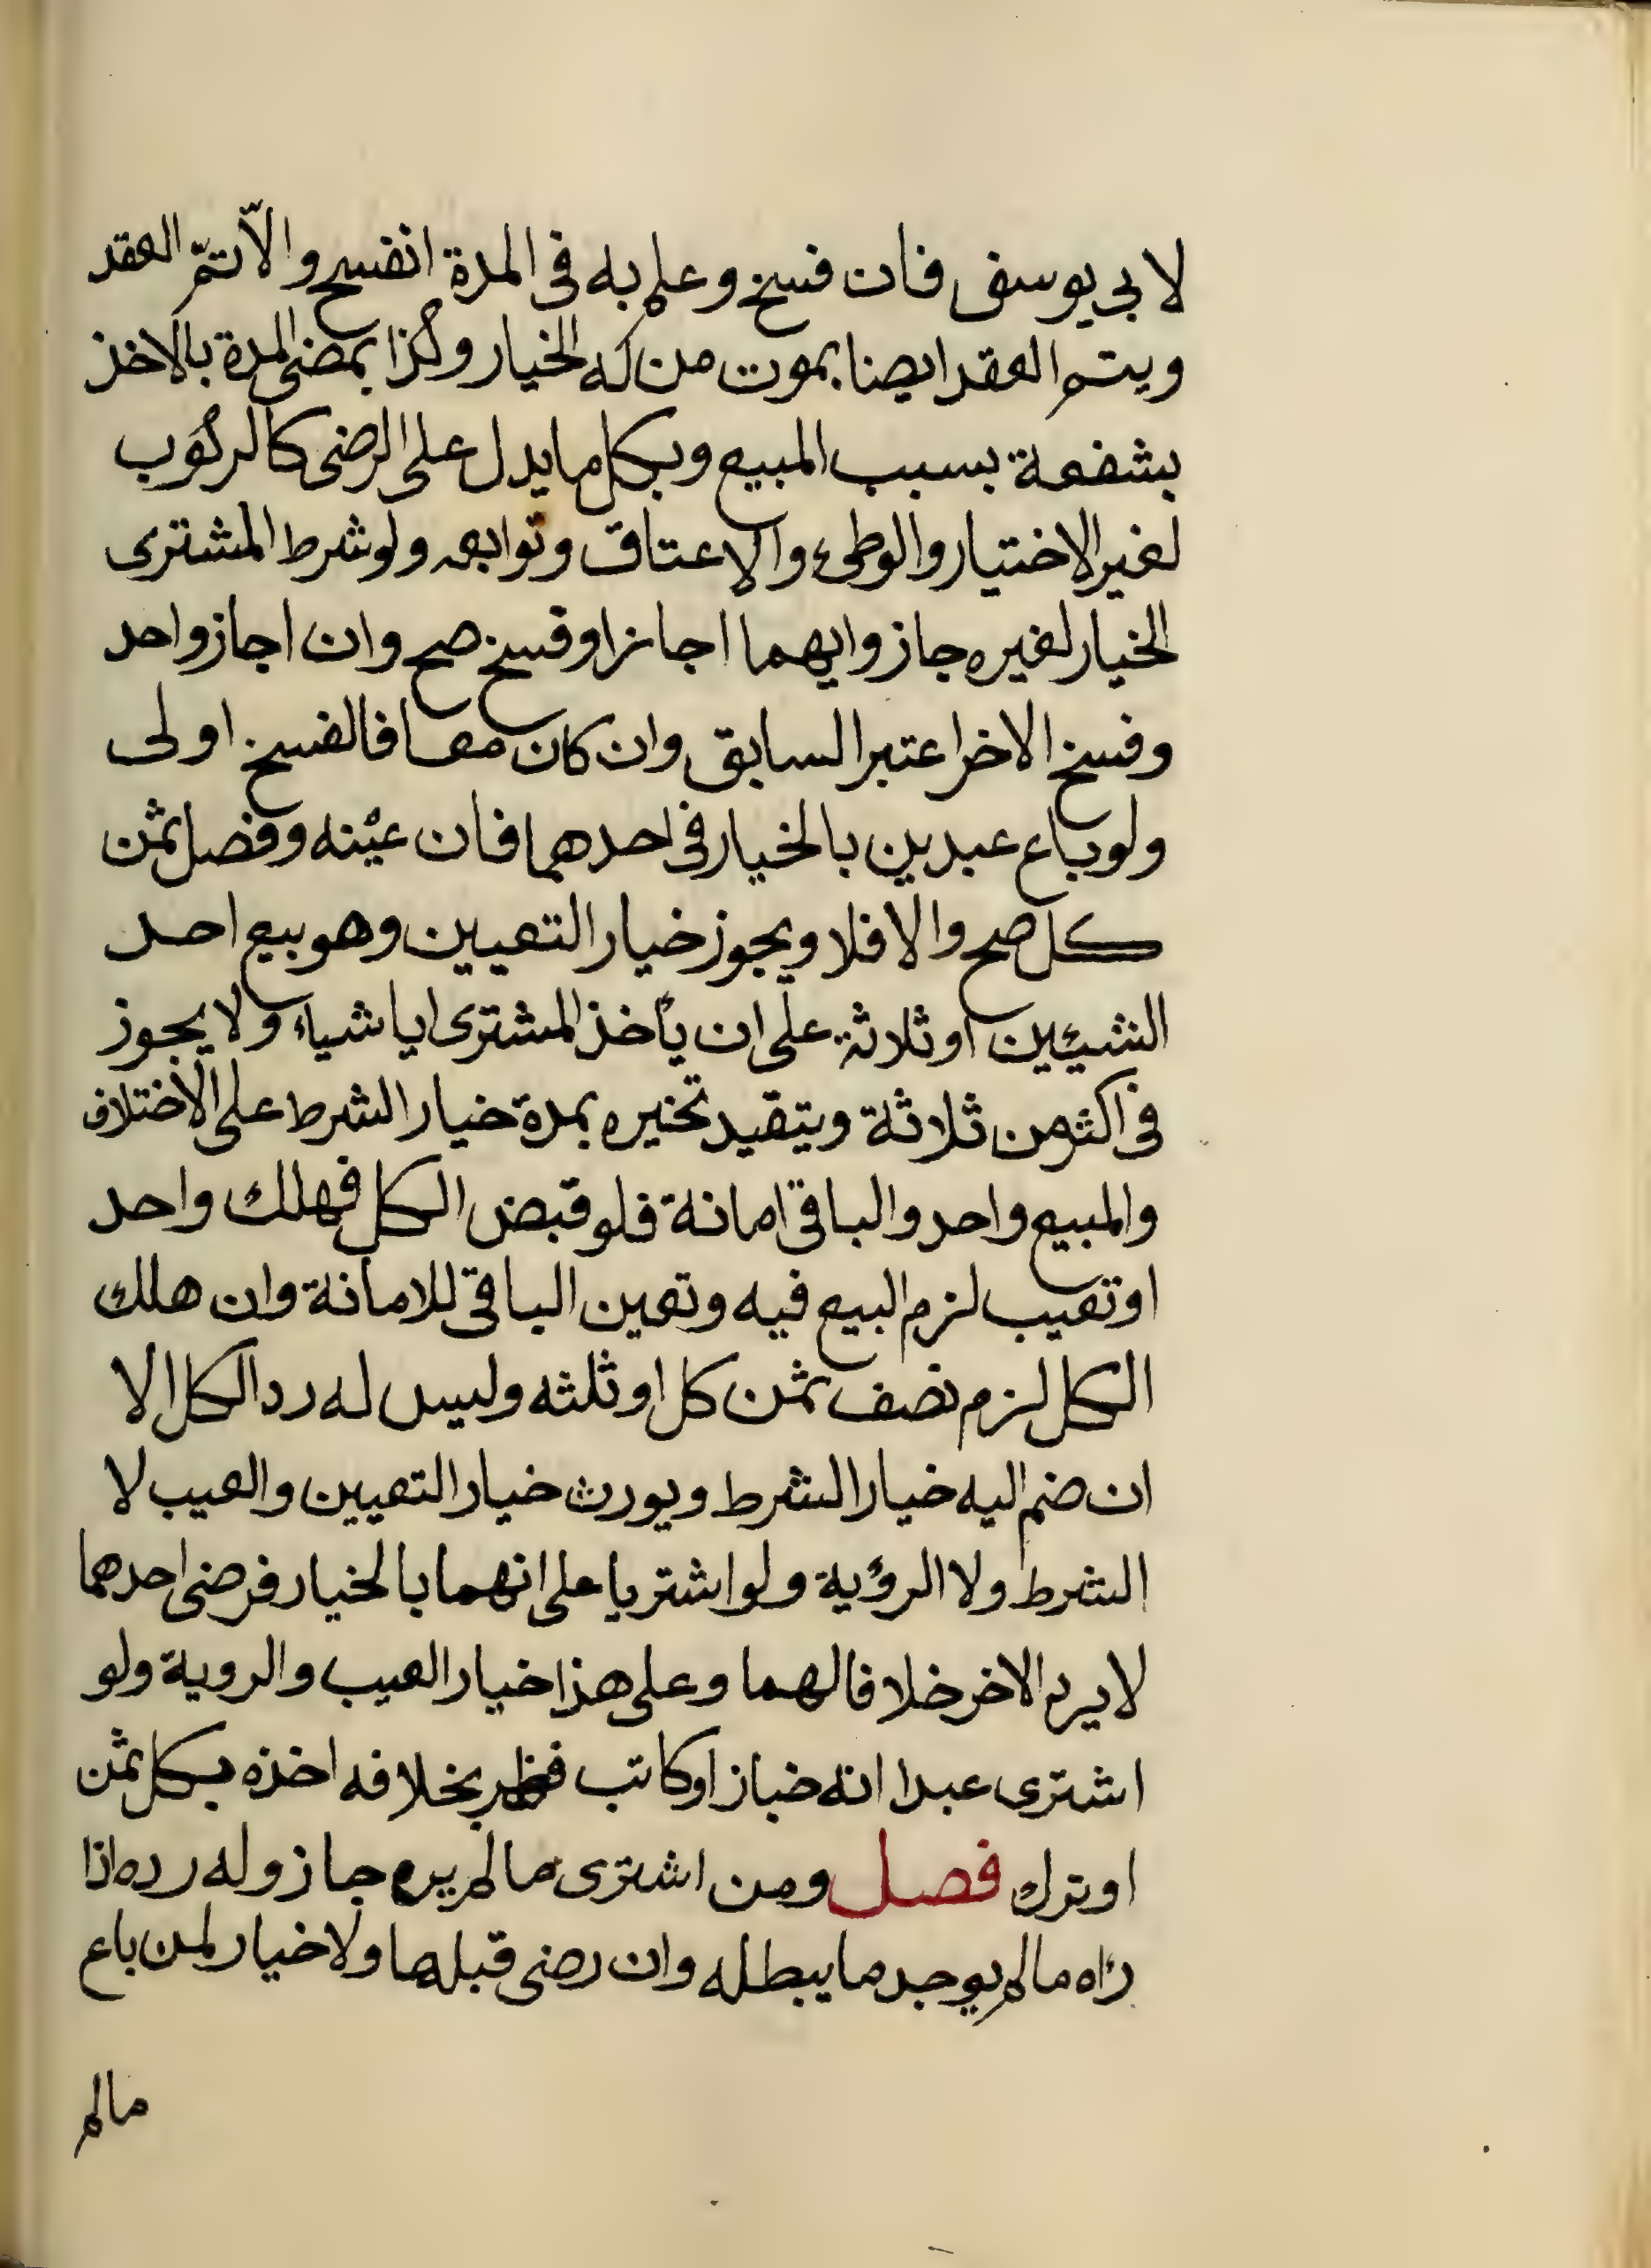 لابي يوسف فان فسخ وعلم به في المدة انفسخ والّا تمّ العقد
ويتم العقد ايضا بموت من له الخيار وكذا بمضى المدة بالاخذ
بشفعة بسبب المبيع وبكل ما يدل على الرضى كالركوب
لغير الاختيار والوطىء والاعتاق وتوابعه ولو شرط المشترى
الخيار لغيره جاز وايهما اجاز او فسخ صح وان اجاز واحد
وفسخ الاخر اعتبر السابق وان كان معا فالفسخ اولى
ولو باع عبدين بالخيار في احدهما فان عينه وفصل ثمن
كل صح والا فلا ويجوز خيار التعيين وهو بيع احد
الشيئين او ثلاثة على ان يأخذ المشترى ايا شياء ولا يجوز
في اكثر من ثلاثة ويتقيد تخيره بمدة خيار الشرط على الاختلاف
والمبيع واحد والباقي امانة فلو قبض الكل فهلك واحد
او تعيب لزم البيع فيه وتعين الباقي للامانة وان هلك
الكل لزم نصف ثمن كل او ثلثه وليس له رد الكل الا
ان ضم اليه خيار الشرط ويورث خيار التعيين والعيب لا
الشرط ولا الرؤية ولو اشتريا على انهما بالخيار فرضى احدهما
لا يرد الاخر خلافا لهما وعلى هذا خيار العيب والروية ولو
اشترى عبدا انه خباز او كاتب فظهر بخلافه اخذه بكل ثمن
او ترك فصل ومن اشترى ما لم يره جاز وله رده اذا
رٱه ما لم يوجد ما يبطله وان رضى قبلها ولا خيار لمن باع
مالم